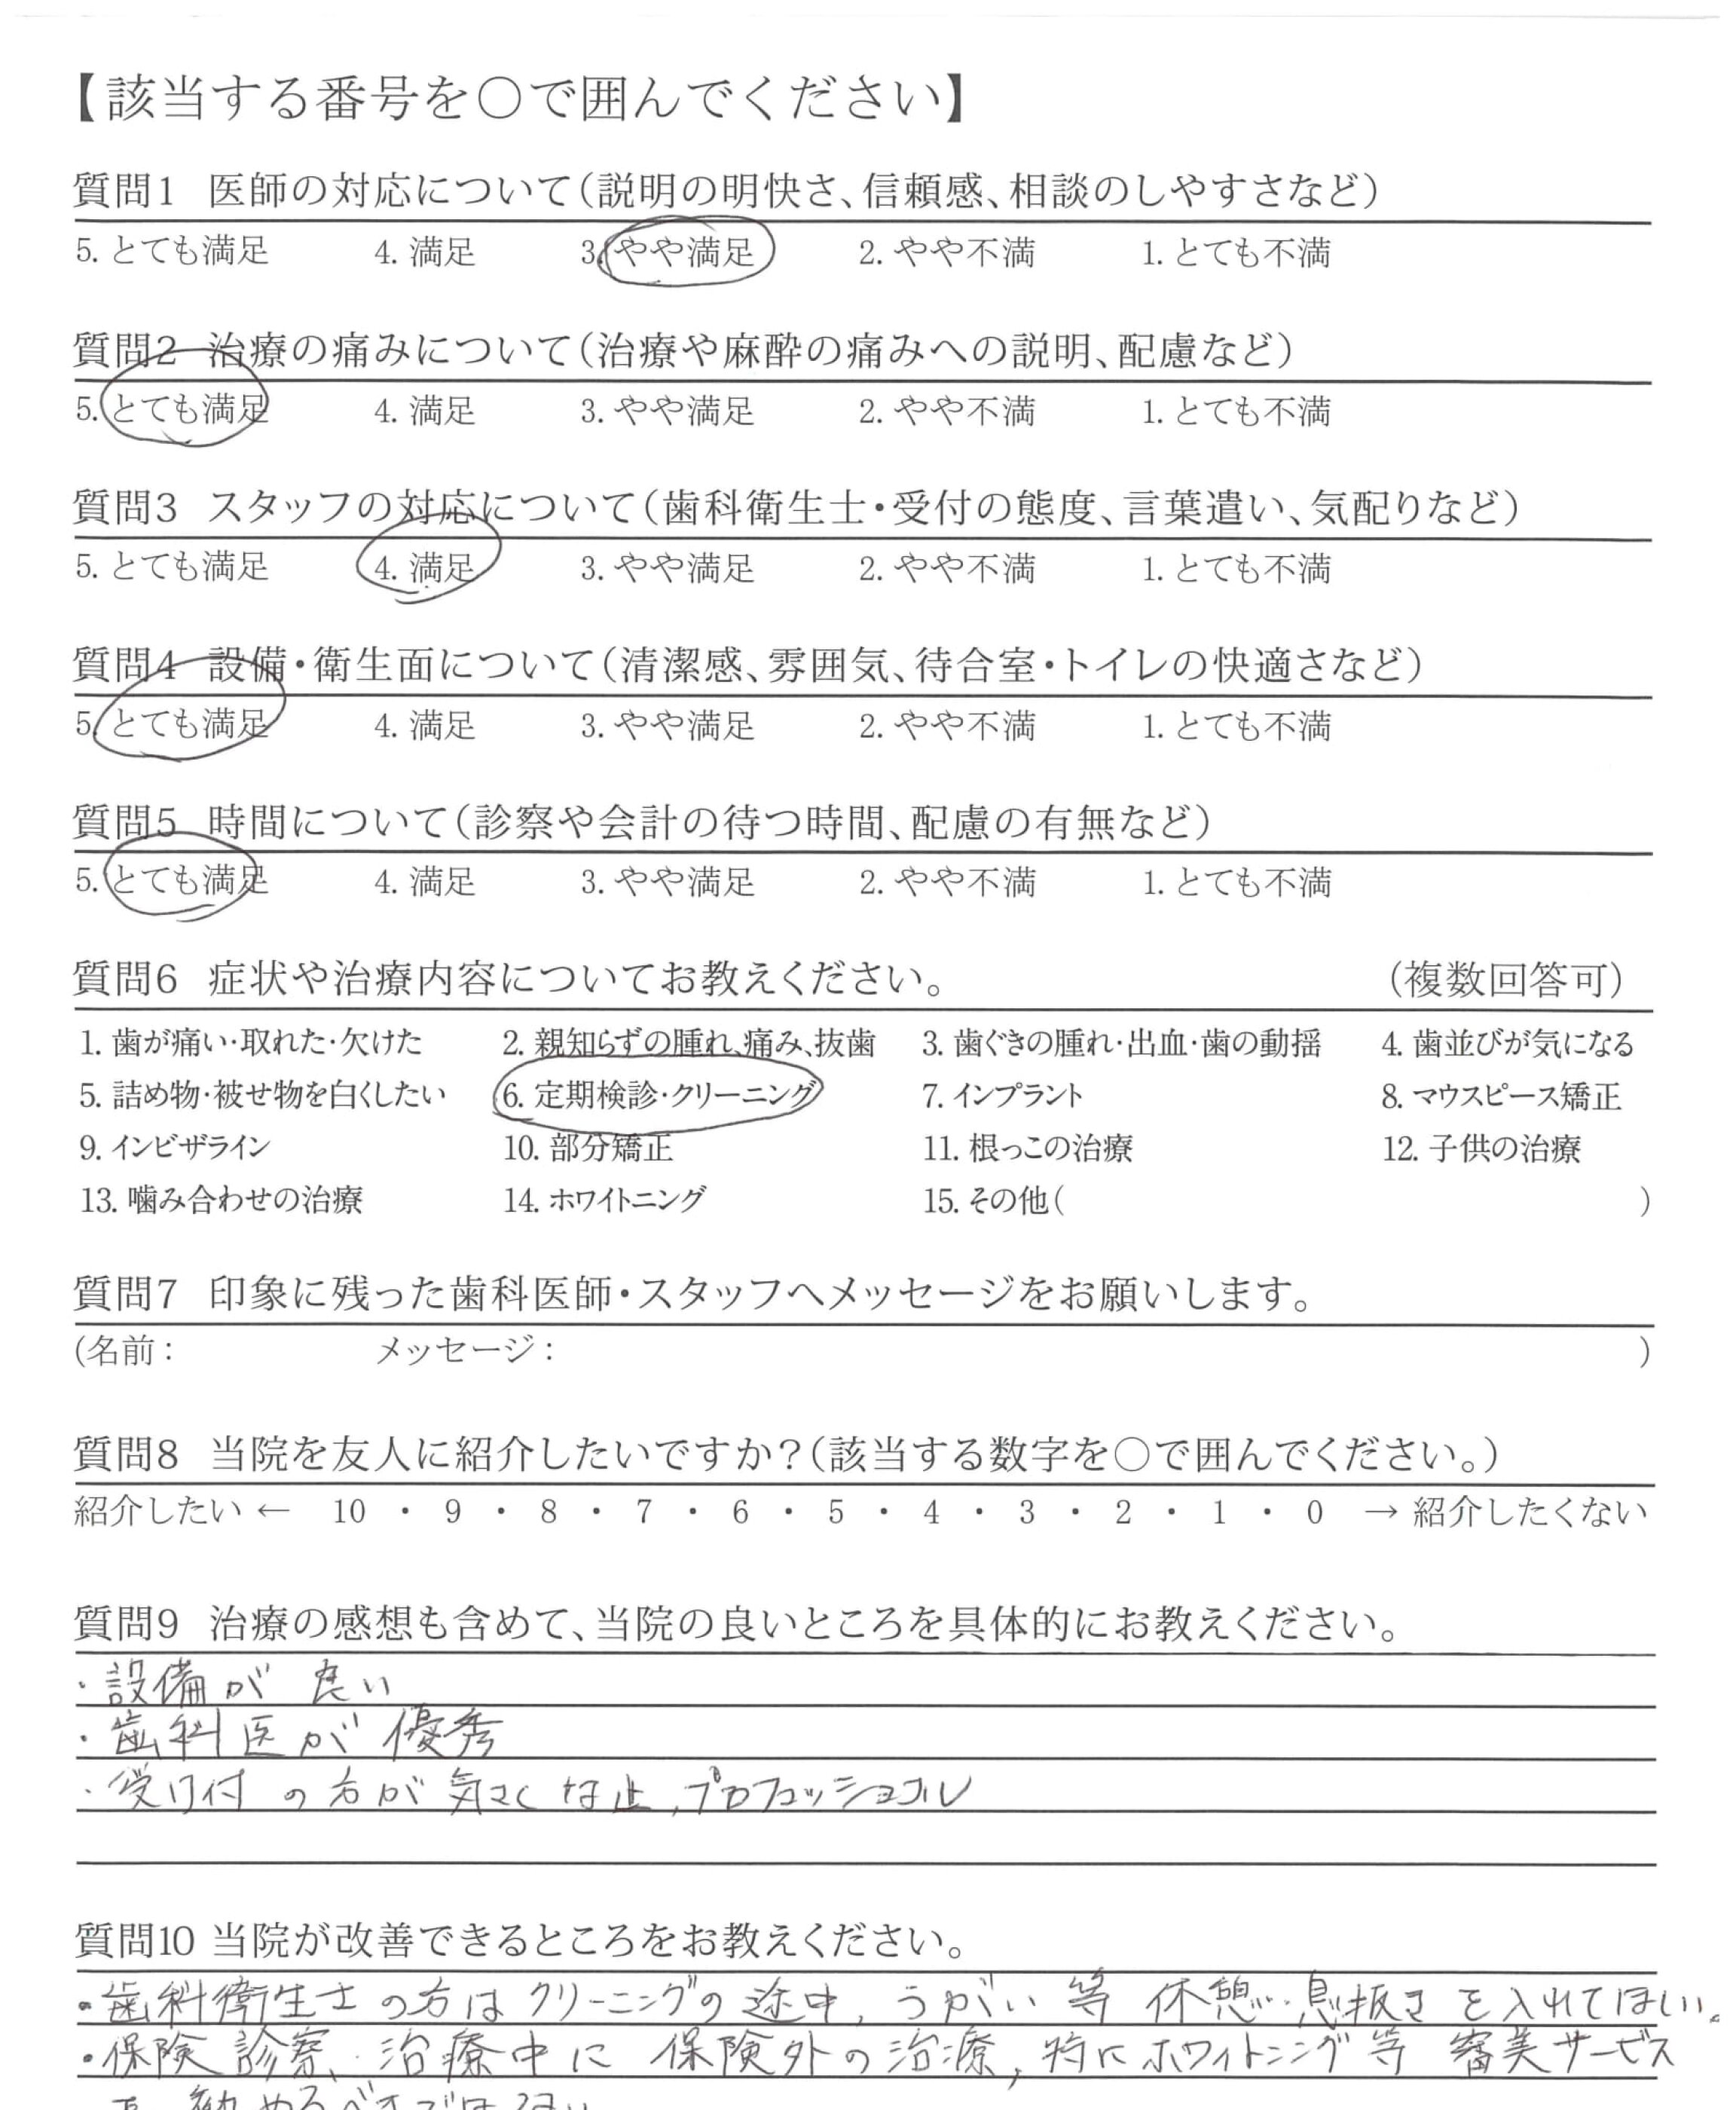 【該当する番号を○で囲んでください】
質問1 医師の対応について(説明の明快さ、信頼感、相談のしやすさなど)
5. とても満足 4. 満足 3. やや満足 2. やや不満 1. とても不満
質問2 治療の痛みについて(治療や麻酔の痛みへの説明、配慮など)
5. とても満足 4. 満足 3. やや満足 2. やや不満 1. とても不満
質問3 スタッフの対応について(歯科衛生士・受付の態度、言葉遣い、気配りなど)
5. とても満足 4. 満足 3. やや満足 2. やや不満 1. とても不満
質問4 設備・衛生面について(清潔感、雰囲気、待合室・トイレの快適さなど)
5. とても満足 4. 満足 3. やや満足 2. やや不満 1. とても不満
質問5 時間について(診察や会計の待つ時間、配慮の有無など)
5. とても満足 4. 満足 3. やや満足 2. やや不満 1. とても不満
質問6 症状や治療内容についてお教えください。 (複数回答可)
1. 歯が痛い・取れた・欠けた 2. 親知らずの腫れ、痛み、抜歯 3. 歯ぐきの腫れ・出血・歯の動揺 4. 歯並びが気になる
5. 詰め物・被せ物を白くしたい 6. 定期検診・クリーニング 7. インプラント 8. マウスピース矯正
9. インビザライン 10. 部分矯正 11. 根っこの治療 12. 子供の治療
13. 噛み合わせの治療 14. ホワイトニング 15. その他( )
質問7 印象に残った歯科医師・スタッフへメッセージをお願いします。
(名前: メッセージ: )
質問8 当院を友人に紹介したいですか?(該当する数字を○で囲んでください。)
紹介したい ← 10 ・ 9 ・ 8 ・ 7 ・ 6 ・ 5 ・ 4 ・ 3 ・ 2 ・ 1 ・ 0 → 紹介したくない
質問9 治療の感想も含めて、当院の良いところを具体的にお教えください。
・設備が良い
・歯科医が優秀
・受け付の方が気さくな上、プロフェッショナル
質問10 当院が改善できるところをお教えください。
・歯科衛生士の方はクリーニングの途中、うがい等休憩・息抜きを入れてほしい。
・保険診察、治療中に保険外の治療、特にホワイトニング等審美サービス
を勧めるべきではない